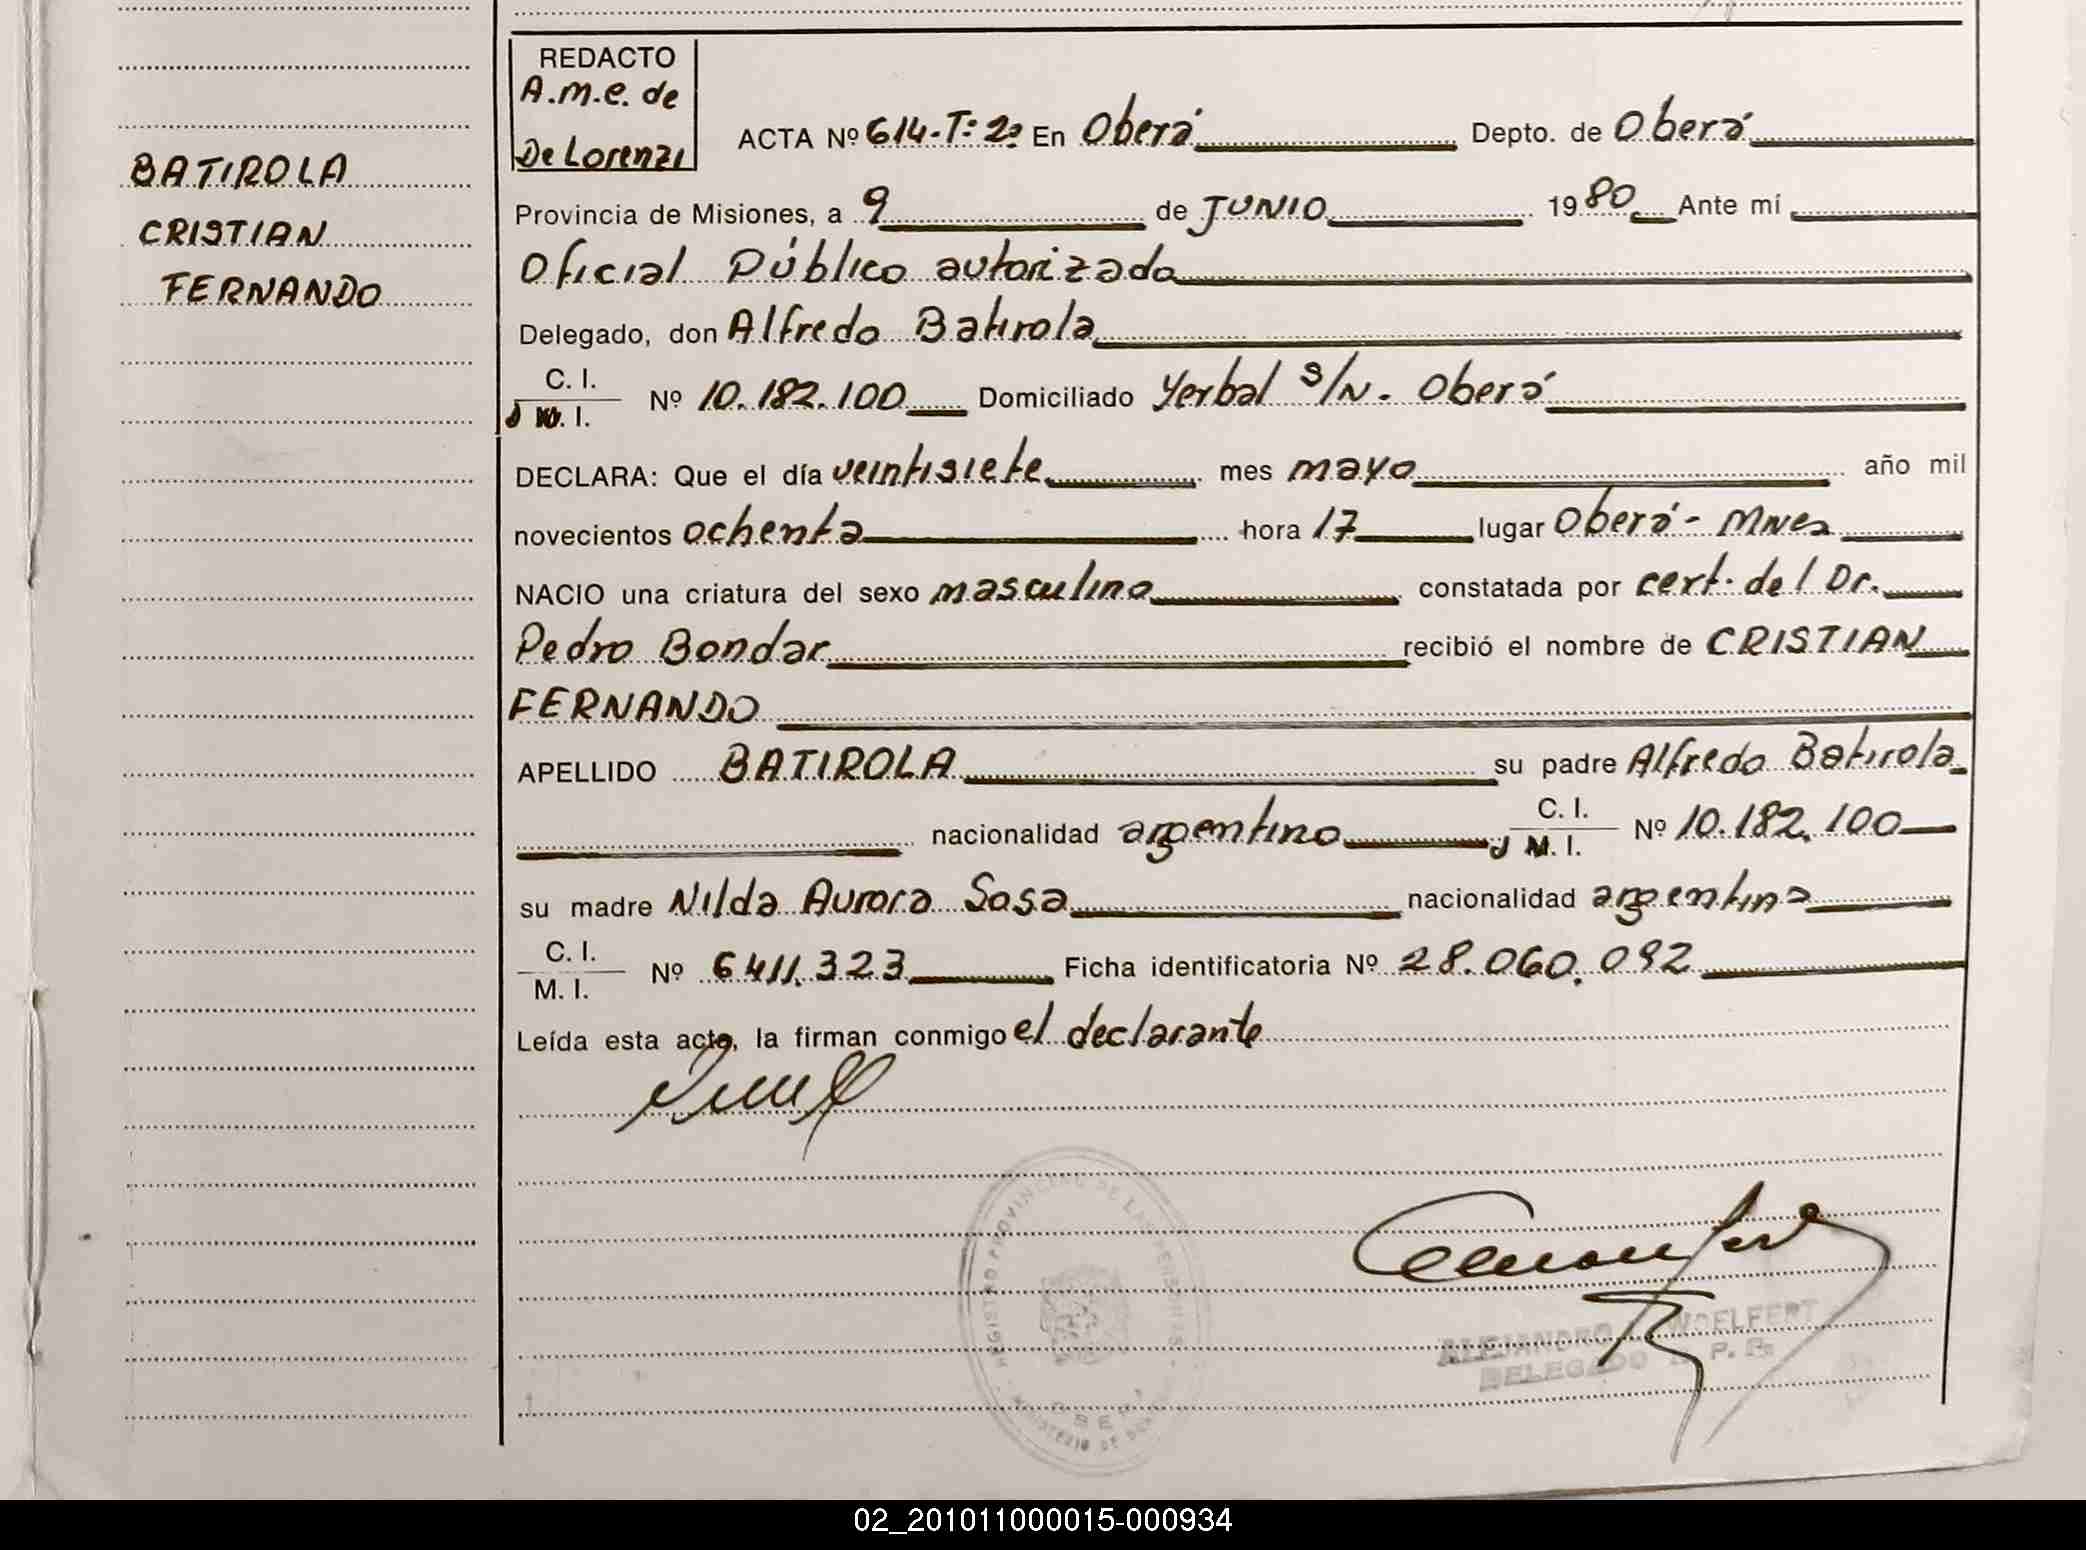 REDACTO
A.m.e. de
De Lorenzi
ACTA Nº 614-T: 2º En Oberá Depto. de Oberá
BATIROLA
CRISTIAN
FERNANDO
Provincia de Misiones, a 9 de JUNIO 1980 Ante mí
Oficial Público autorizado
Delegado, don Alfredo Batirola
C. I.
M. I. Nº 10.182.100 Domiciliado Yerbal S/N. Oberá
DECLARA: Que el día veintisiete mes mayo año mil
novecientos ochenta hora 17 lugar Oberá - Mnes
NACIO una criatura del sexo masculino constatada por cert. del Dr.
Pedro Bondar recibió el nombre de CRISTIAN
FERNANDO
APELLIDO BATIROLA su padre Alfredo Batirola
nacionalidad argentino C. I. M. I. Nº 10.182.100
su madre Nilda Aurora Sosa nacionalidad argentina
C. I.
M. I. Nº 6411.323 Ficha identificatoria Nº 28.060.092
Leída esta acta, la firman conmigo el declarante
REGISTRO PROVINCIAL DE LAS PERSONAS
OBERA
MINISTERIO DE
ALEJANDRO
DELEGADO R. P. P.
02_201011000015-000934